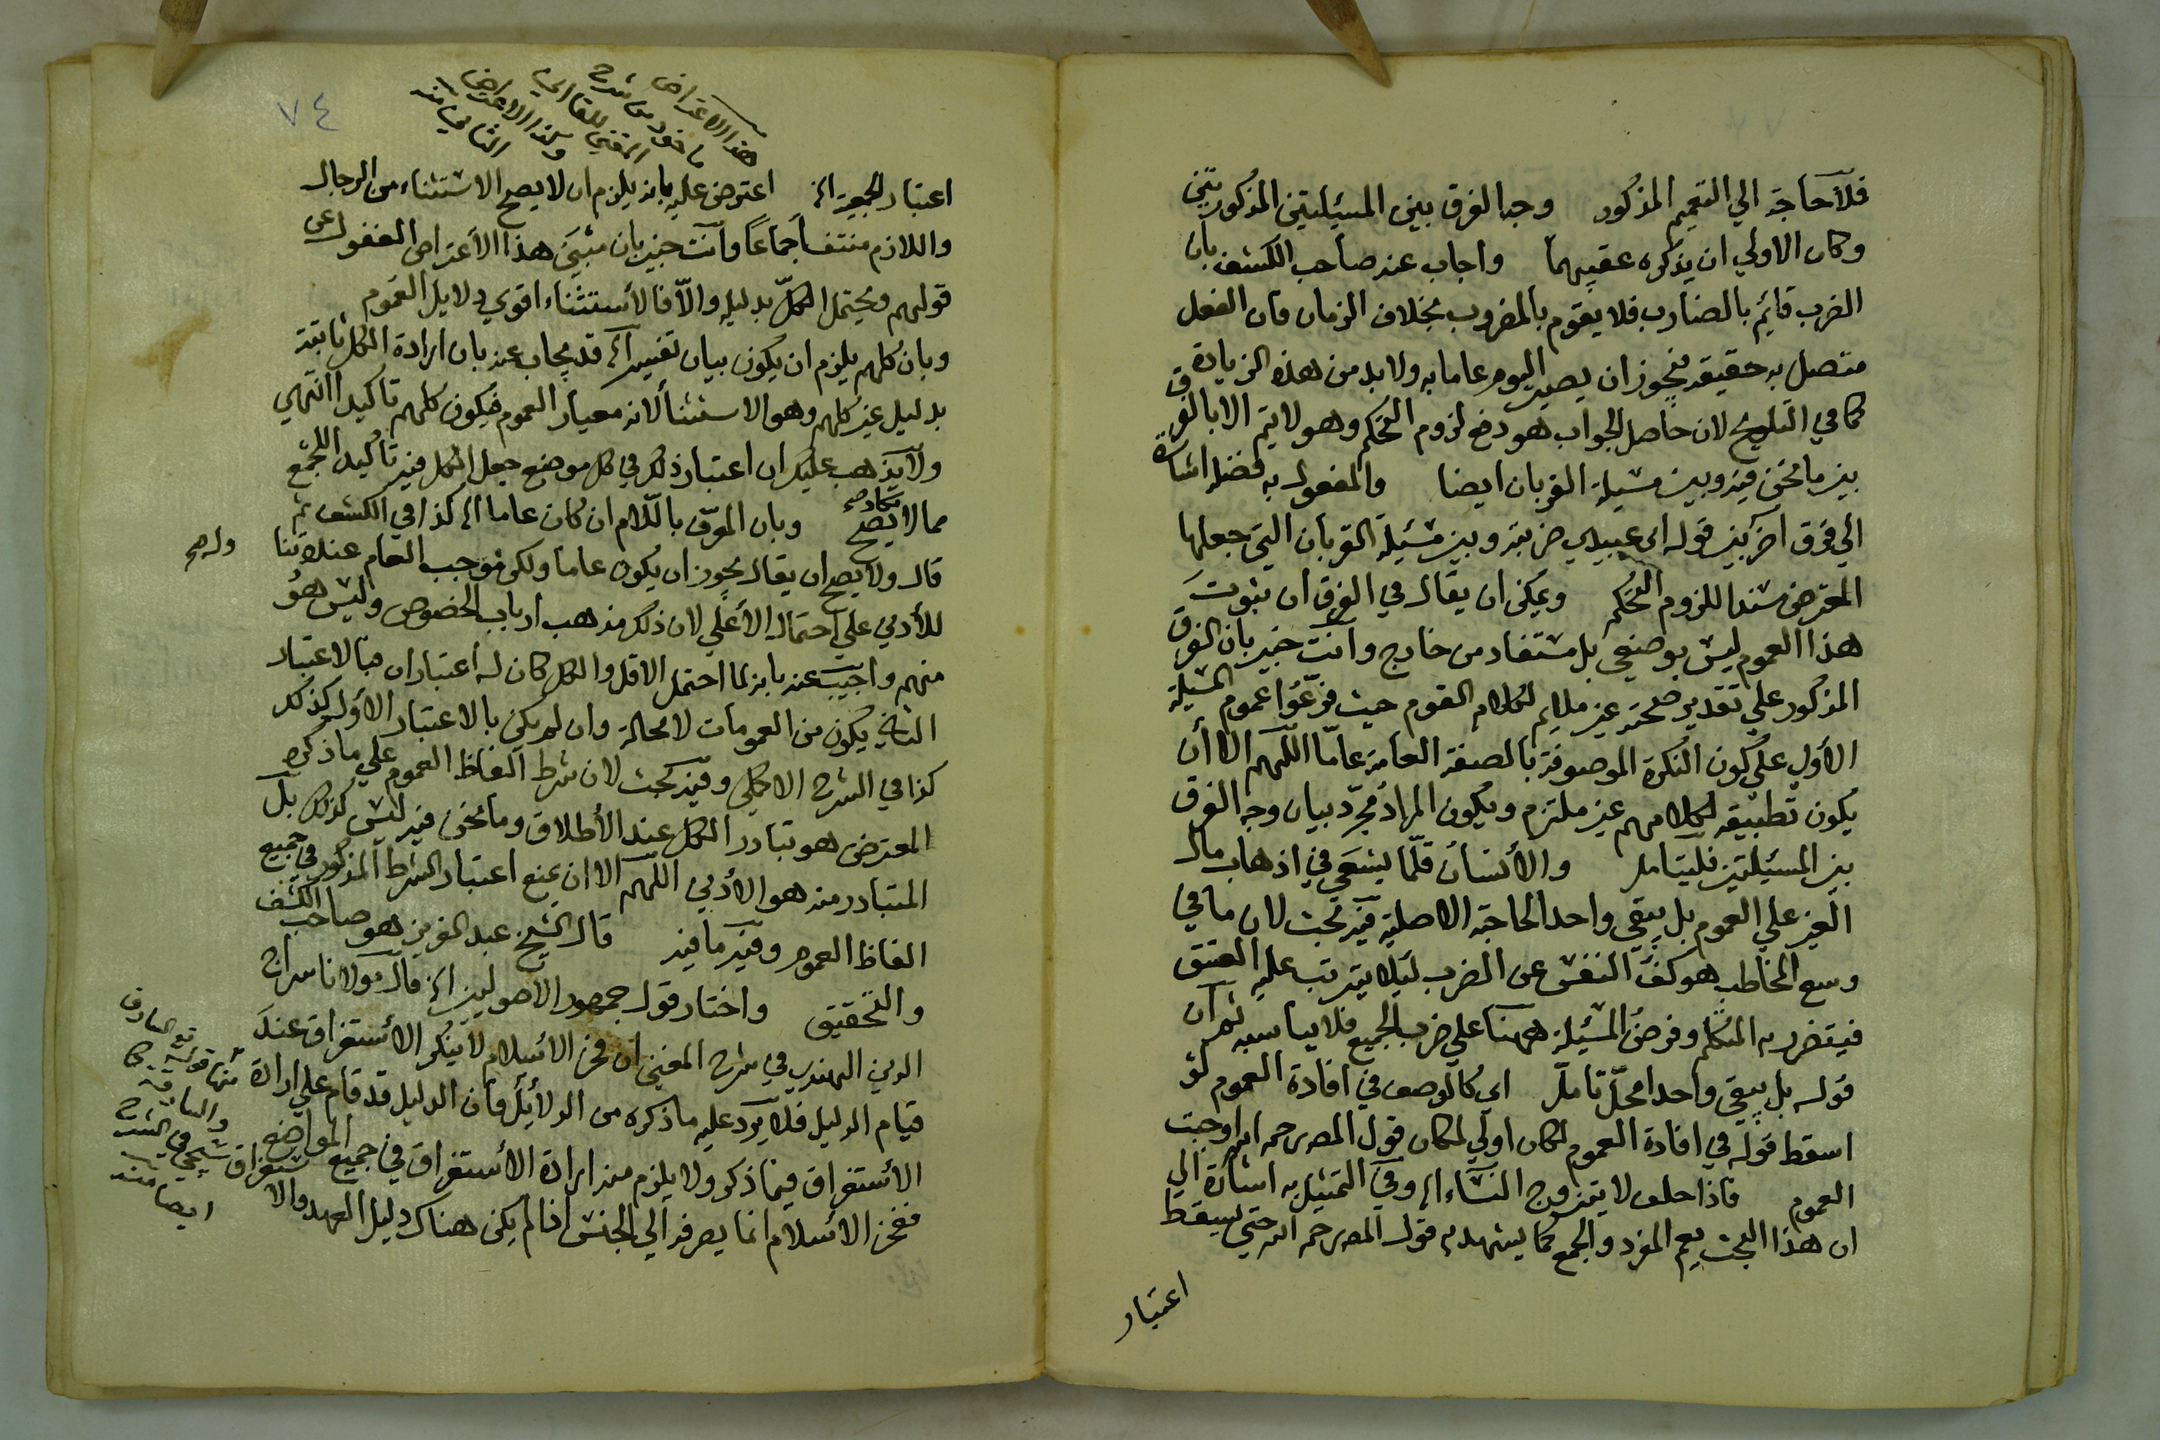 فلا حاجة الي التعميم المذكور وجه الفرق بين المسئلتين المذكورتين
وكان الاولي ان يذكره عقيبهما واجاب عنه صاحب الكشف بان
الضرب قائم بالضارب فلا يقوم بالمضروب بخلاف الزمان فان الفعل
متصل به حقيقة فيجوز ان يصير اليوم عاما به ولا بد من هذه الزيادة
كما في التلويح لان حاصل الجواب هو دفع لزوم التحكم وهو لا يتم الا بالفرق
بين ما نحن فيه وبين مسئلة القربان ايضا والمفعول به فضلة اشارة
الي فرق آخر بين قوله اي عبيدي ضربته وبين مسئلة القربان التي جعلها
المعترض سندا للزوم التحكم ويمكن ان يقال في الفرق ان ثبوت
هذا العموم ليس بوضعي بل مستفاد من خارج وانت خبير بان الفرق
المذكور علي تقدير صحته غير ملايم لكلام القوم حيث فرّعوا عموم المسئلة
الأولي علي كون النكرة الموصوفة بالصفة العامة عامّا اللّهم الا أن
يكون تطبيقه لكلامهم غير ملتزم ويكون المراد مجرّد بيان وجه الفرق
بين المسئلتين فليتأمل والأنسان قلّما يسعي في اذهاب مال
الغير علي العموم بل يبقي واحد الحاجته الاصلية فيه بحث لان ما في
وسع المخاطب هو كفّ النفس عن الضرب لئلا يترتب عليه العتق
فيتضرر به المتكلم وفرض المسئلة ههنا علي ضرب الجميع فلا يناسبه ثم ان
قوله بل يبقي واحدا محلّ تأمل اي كالوصف في افادة العموم لو
اسقط قوله في افادة العموم لكان اولي لمكان قول المص رحمه الله اوجبت
العموم فاذا حلف لا يتزوج النساء الخ وفي التمثيل به اشارة الي
ان هذا البحث يعم المفرد والجمع كما يشهد به قول المص رحمه الله حتي يسقط
اعتبار
٧٤
هذا الاعتراض
مأخوذ من شرح
المغني للقاآني
وكذا الاعتراض
الثاني منه
اعتبار الجمعية الخ اعترض عليه بانه يلزم ان لا يصح الاستثناء من الرجال
واللازم منتف اجماعا وانت خبير بان مبني هذا الاعتراض الغفول عن
قولهم ويحتمل الكلّ بدليله والّا فالأستثناء اقوي دلايل العموم
وبان كلهم يلزم ان يكون بيان تفسير الخ قد يجاب عنه بان ارادة الكل ثابتة
بدليل غير كلهم وهو الاستثنأ لانه معيار العموم فيكون كلهم تاكيدا انتهي
ولا يذهب عليك ان اعتبار ذلك في كل موضع جعل الكل فيه تأكيد الجمع
مما لا يكاد يصح وبان المعرّف باللّام ان كان عاما الخ كذا في الكشف ثم
قال ولا يصح ان يقال يجوز ان يكون عاما ولكن موجب العام عندنا تناوله صح
للأدني علي احتمال الأعلي لان ذلك مذهب ارباب الخصوص وليس هو
منهم واجيب عنه بانه لما احتمل الاقل والكل كان له اعتباران فبالاعتبار
الثاني يكون من العمومات لا محالة وان لم يكن بالاعتبار الأول كذلك
كذا في الشرح الاكملي وفيه بحث لان شرط الفاظ العموم علي ما ذكره
المعترض هو تبادر الكل عند الأطلاق وما نحن فيه ليس كذلك بل
المتبادر منه هو الأدني اللهم الا ان يمنع اعتبار الشرط المذكور في جميع
الفاظ العموم وفيه ما فيه قال الشيخ عبد العزيز هو صاحب الكشف
والتحقيق واختار قول جمهور الأصوليين الخ قال مولانا سراج
الدين الهندي في شرح المغني ان فخر الأسلام لا ينكر الأستغراق عند
قيام الدليل فلا يرد عليه ما ذكره من الدلائل فان الدليل قد قام علي ارادة
الأستغراق فيما ذكر ولا يلزم منه ارادة الأستغراق في جميع المواضع
ففخر الأسلام انما يصرفه الي الجنس اذا لم يكن هناك دليل العهد والاستغراق
ايضا منه